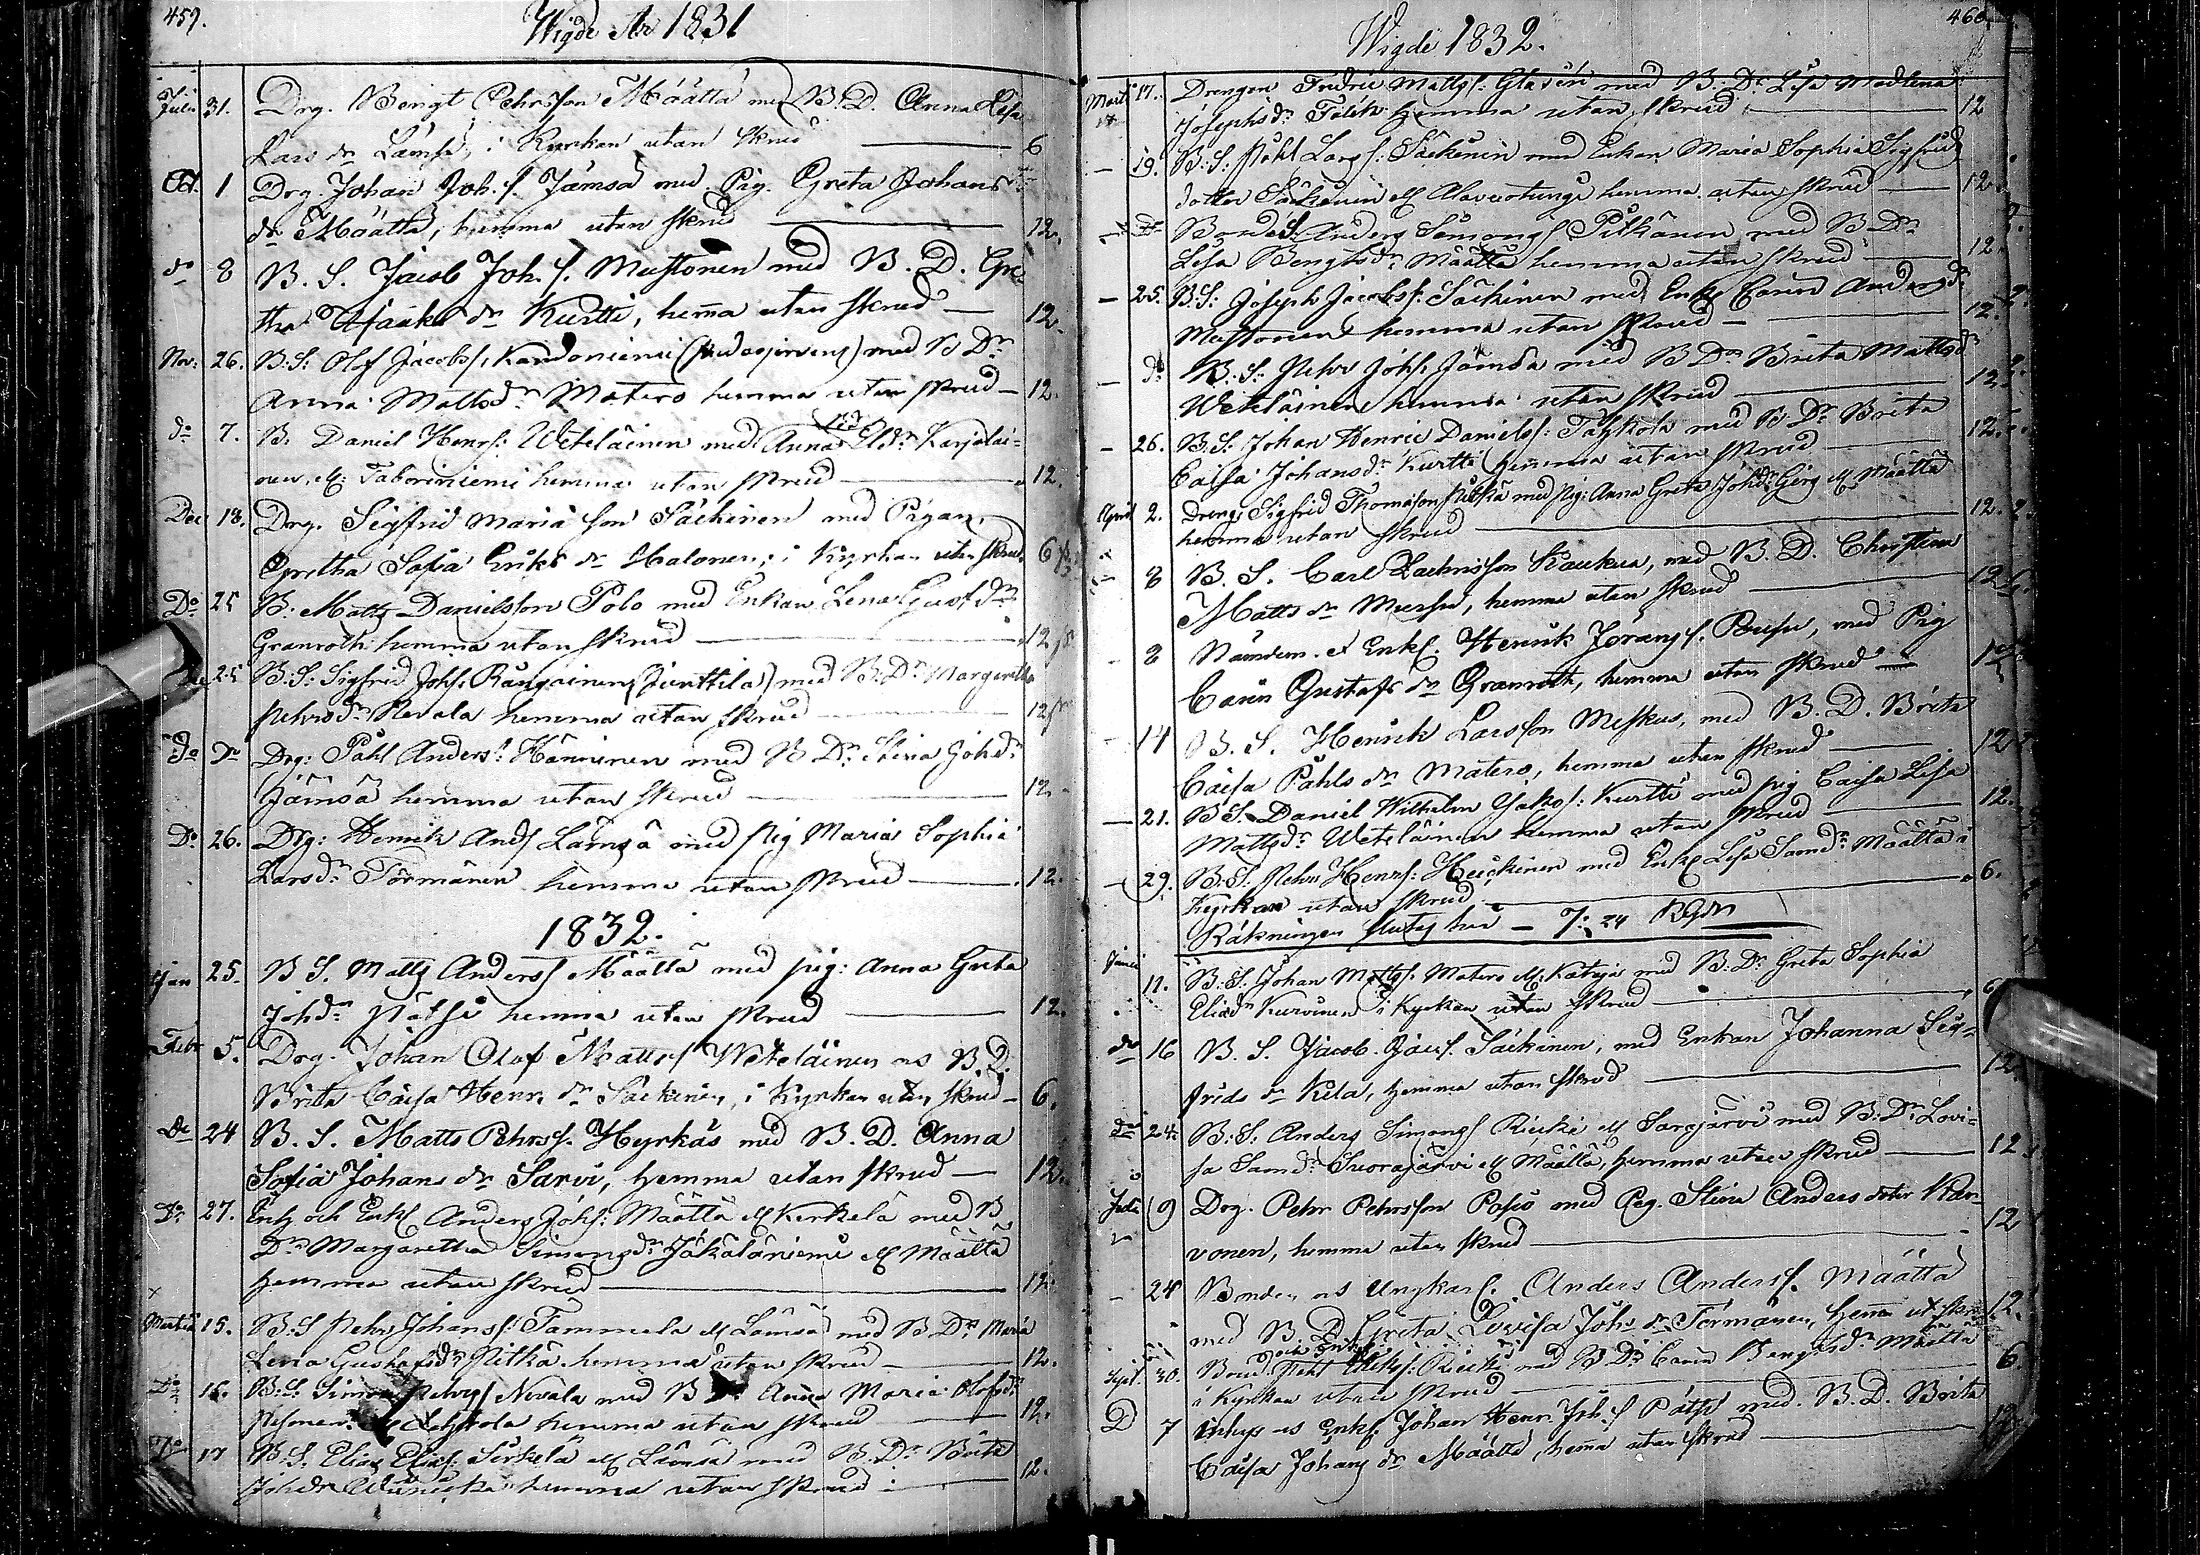 459.
Wigde År 1831
Juli 31. Drg. Bengt Pehrsson Määttä med B. D. Anna Lisa
Lars dr Lämsä, i Kyrkan utan skrud 6
Oct. 1 Drg. Johan Joh. s. Jämsä med Pig. Greta Johans
dr Määttä, hemma utan skrud 12.
do 8 B. S. Jacob Joh. s. Mustonen med B. D. Gre-
tha Isaaks dr Kurtti, hemma utan skrud 12.
Nov. 26. B: S: Olof Jacobs s. med B Dr
Anna Mattsdr Matero hemma utan skrud 12.
do 7. B. Daniel Henrs: Weteläinen med Anna Elsdr Karjalai-
nen, ell. Taboriniemi hemma utan skrud 12.
Dec 18. Drg. Sigfrid Maria son Säckinen med Pigan
Gretha Sofia Eriks dr Halonen, i Kyrkan utan skrud 6
Do 25 B: Matts Danielsson Polo med Enkan Lena Gustfdr
Granroth hemma utan skrud 12
25 B: S: Sigfrid Johs. Rångainen (Junttila) med B: Dr Margaretha
Pehrsdr Kerala hemma utan skrud 12
Do Do Drg: Påhl Anders: Hänninen med B Dr: Stina Johdr
Jämsä hemma utan skrud 12.
Do 26. Drg: Henrik Ands Lämsä med Pig Maria Sophia
Larsdr Törmänen hemma utan skrud 12.
1832.
Jan 25. B S. Matts Anderss Määttä med pig: Anna Greta
Johdr Pätsi hemma utan skrud 12.
Febr 5. Drg. Johan Olof Mattss Weteläinen B. D.
Brita Caisa Henr. dr Säckinen, i Kyrkan utan skrud 6.
Do 24 B. S. Matts Pehrss. Hyrkäs med B. D. Anna
Sofia Johans dr Sarvi, hemma utan skrud 12.
Do 27. Enk och Enkl Anders Johs: Määttä ell Kerkelä med B
Dr Margaretha Simonsdr Jäkäläniemi ell Määttä
hemma utan skrud 12.
Martii 15. B: S Pehr Johans: Tammela ell Lämsä med B Dr Maria
Lena Gustafsdr Pitkä hemma utan skrud 12.
Do 16. B: S: Simon Pehrss Nevala med B Dr Anna Maria Olofsdr
ell Lehtola hemma utan skrud 12.
Do 17 B. S. Elias Elias: Sirkelä ell Lämsä med B. Dr Brita
Johdr hemma utan skrud 12.
460.
Wigde 1832.
Mart 17. Drengen Fredric Matts: Glader med B. Dr Lisa Madlena
Josephsdr Tälik hemma utan skrud 12
19. B: S. Påhl Lars: Säckinen med Enkan Maria Sophia Sigfrids
dotter Säckinen ell Alavuotungi hemma utan skrud 12.
Do Bondes. Anders Simons Pitkänen med B Dr
Lisa Bengtsdr Määttä hemma utan skrud 12.
25. B: S: Joseph Jacobs: Säckinen med Enk Carin Andersdr
Mustonen hemma utan skrud 12.
Do B. S. Pehr Johs. Jämsä med B Dr Brita Mattsdr
Weteläinen hemma utan skrud 12.
26. B: S: Johan Henric Daniels: Taykola med B Dr Brita
Caisa Johansdr Kurtti hemma utan skrud 12.
April 2. Dreng: Sigfrid Thomasson Pitkä med Pig: Anna Greta Johdr Girg ell Määttä
hemma utan skrud 12.
8 B. S. Carl Zachrisson Kaukua, med B. D. Christina
Matts dr Meersu, hemma utan skrud 12
8 Nämdem. o Enkl. Henrik Jörans. Pousu, med Pig
Carin Gustafs dr Granroth, hemma utan skrud 12
14 B. S. Henrik Larsson Meskus, med B. D. Brita
Caisa Påhls dr Matero, hemma utan skrud 12
21. B S. Daniel Wilhelm Jakos: Kurtti med pig Caisa Lisa
Mattsdr Weteläinen hemma utan skrud 12.
29. B: S. Pehr Henrs: Heickinen med Enk Lisa Samdr Määttä i
Kyrkan utan skrud 6.
Räkningen slutes här — 7: 24 RGdr
Junii 11. B: S. Johan Matts: Matero ell Kataja med B. Dr Greta Sophia
Eliædr Kurvinen i Kyrkan utan skrud 6
do 16 B. S. Jacob Jacs. Säckinen, med Enkan Johanna Sig-
frids dr Kela, hemma utan skrud 12.
Do 24. B: S: Anders Simons Riicki ell Sarajärvi med B: Dr Lovi-
sa Samdr Suorajärvi ell Määttä, hemma utan skrud 12
Juli 9 Drg. Pehr Pehrsson Posio med Pig. Stina Anders doter Kar-
vonen, hemma utan skrud 12
24 Bonden Ungkarl. Anders Anderss. Määttä
med B. D. Greta Lovisa Johs dr Törmänen, hemma ut. skrud 12.
Sept. 30. Bond. och Enkl Påhl Ericks: Riicki med B Dr Carin Bengtsdr Määttä
i Kyrkan utan skrud 6.
D 7 Inhys Enkl. Johan Henr. Joh. s Pätsi med B. D. Brita
Caisa Johans dr Määttä, hemma utan skrud 12.